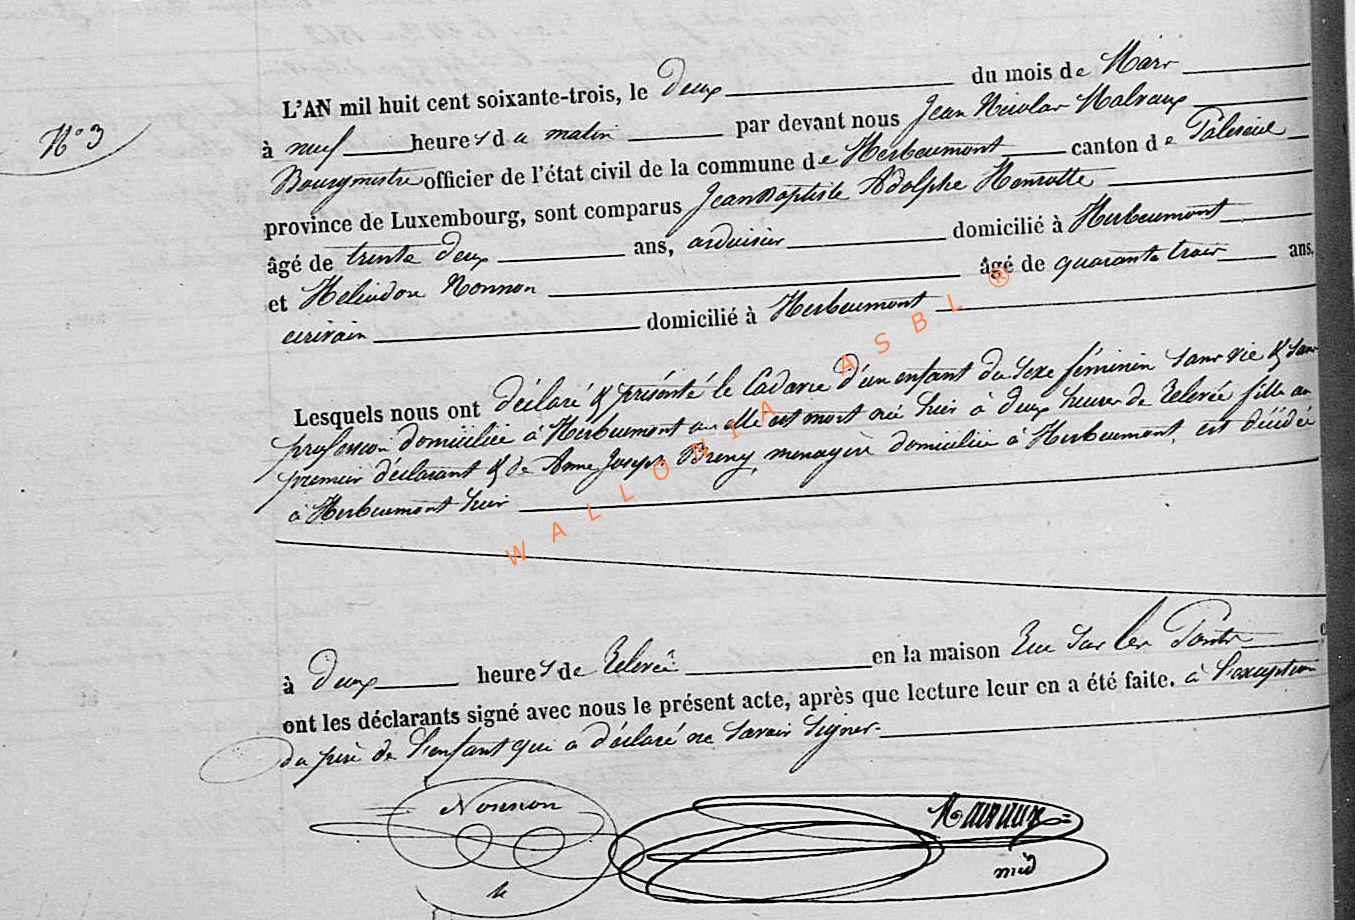 N° 3
L'AN mil huit cent soixante-trois, le deux du mois de Mars
à neuf heures du matin par devant nous Jean Nicolas Malvaux
Bourgmestre officier de l'état civil de la commune de Herbeumont canton de Paliseul
province de Luxembourg, sont comparus Jean Baptiste Adolphe Henrotte
âgé de trente deux ans, ardoisier domicilié à Herbeumont
et Hélindon Nonnon âgé de quarante trois ans,
écrivain domicilié à Herbeumont
Lesquels nous ont déclaré & présenté le Cadavre d'un enfant du sexe féminin sans vie & sans
profession domiciliée à Herbeumont où elle est mort née hier à deux heures de Relevée fille au
premier déclarant & de Anne Joseph Breny, ménagère domiciliée à Herbeumont, est décédée
à Herbeumont hier
à Deux heures de Relevée en la maison Rue Sur les Ponts
ont les déclarants signé avec nous le présent acte, après que lecture leur en a été faite. à l'exception
du père de l'enfant qui a déclaré ne savoir signer.
Nonnon
WALLONIA ASBL ®